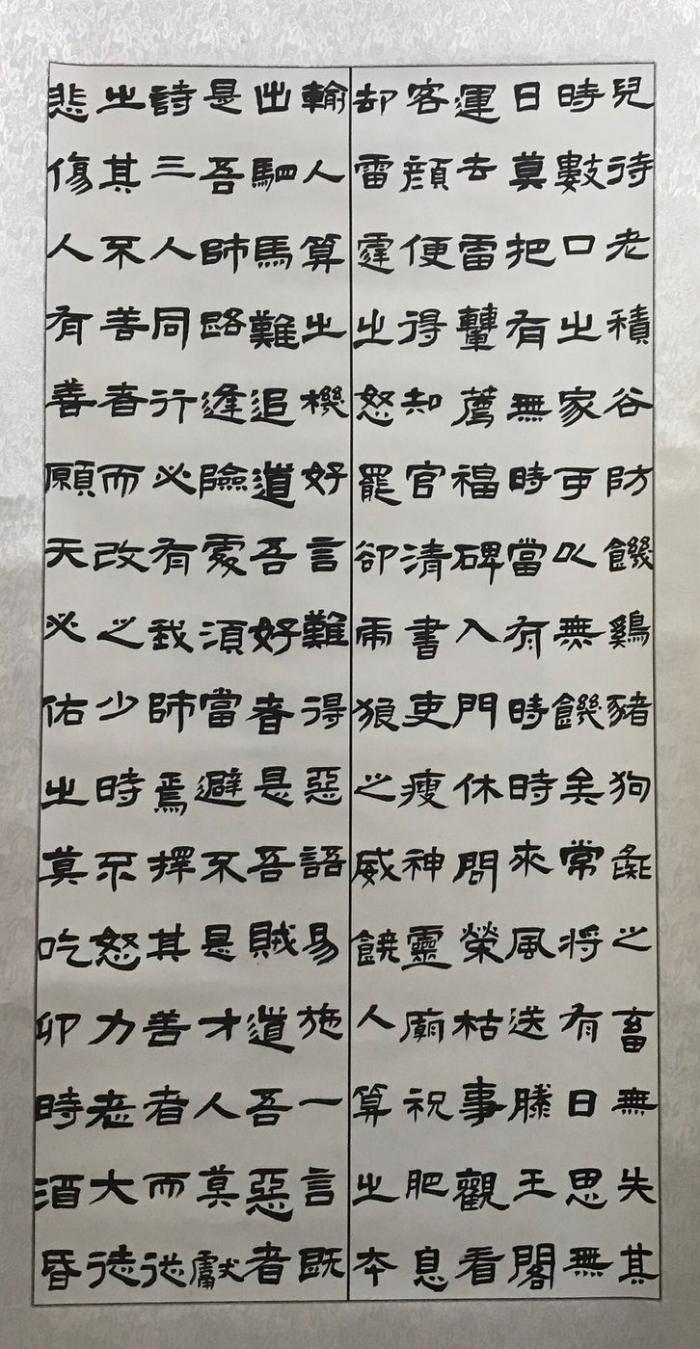 兒待老積谷防饑鷄豬狗彘之畜無失其
時數口之家可以無饑矣常將有日思無
日莫把有無時當有時時來風送滕王閣
運去雷轟薦福碑入門休問榮枯事觀看
客顔便得知官清書吏瘦神靈廟祝肥息
却雷霆之怒罷卻乕狼之威饒人算之本
輸人算之機好言難得惡語易施一言既
出駟馬難追道吾好者是吾賊道吾惡者
是吾師路逢險處須當避不是才人莫獻
詩三人同行必有我師焉擇其善者而從
之其不善者而改之少時不怒力老大徒
悲傷人有善願天必佑之莫吃卯時酒昏